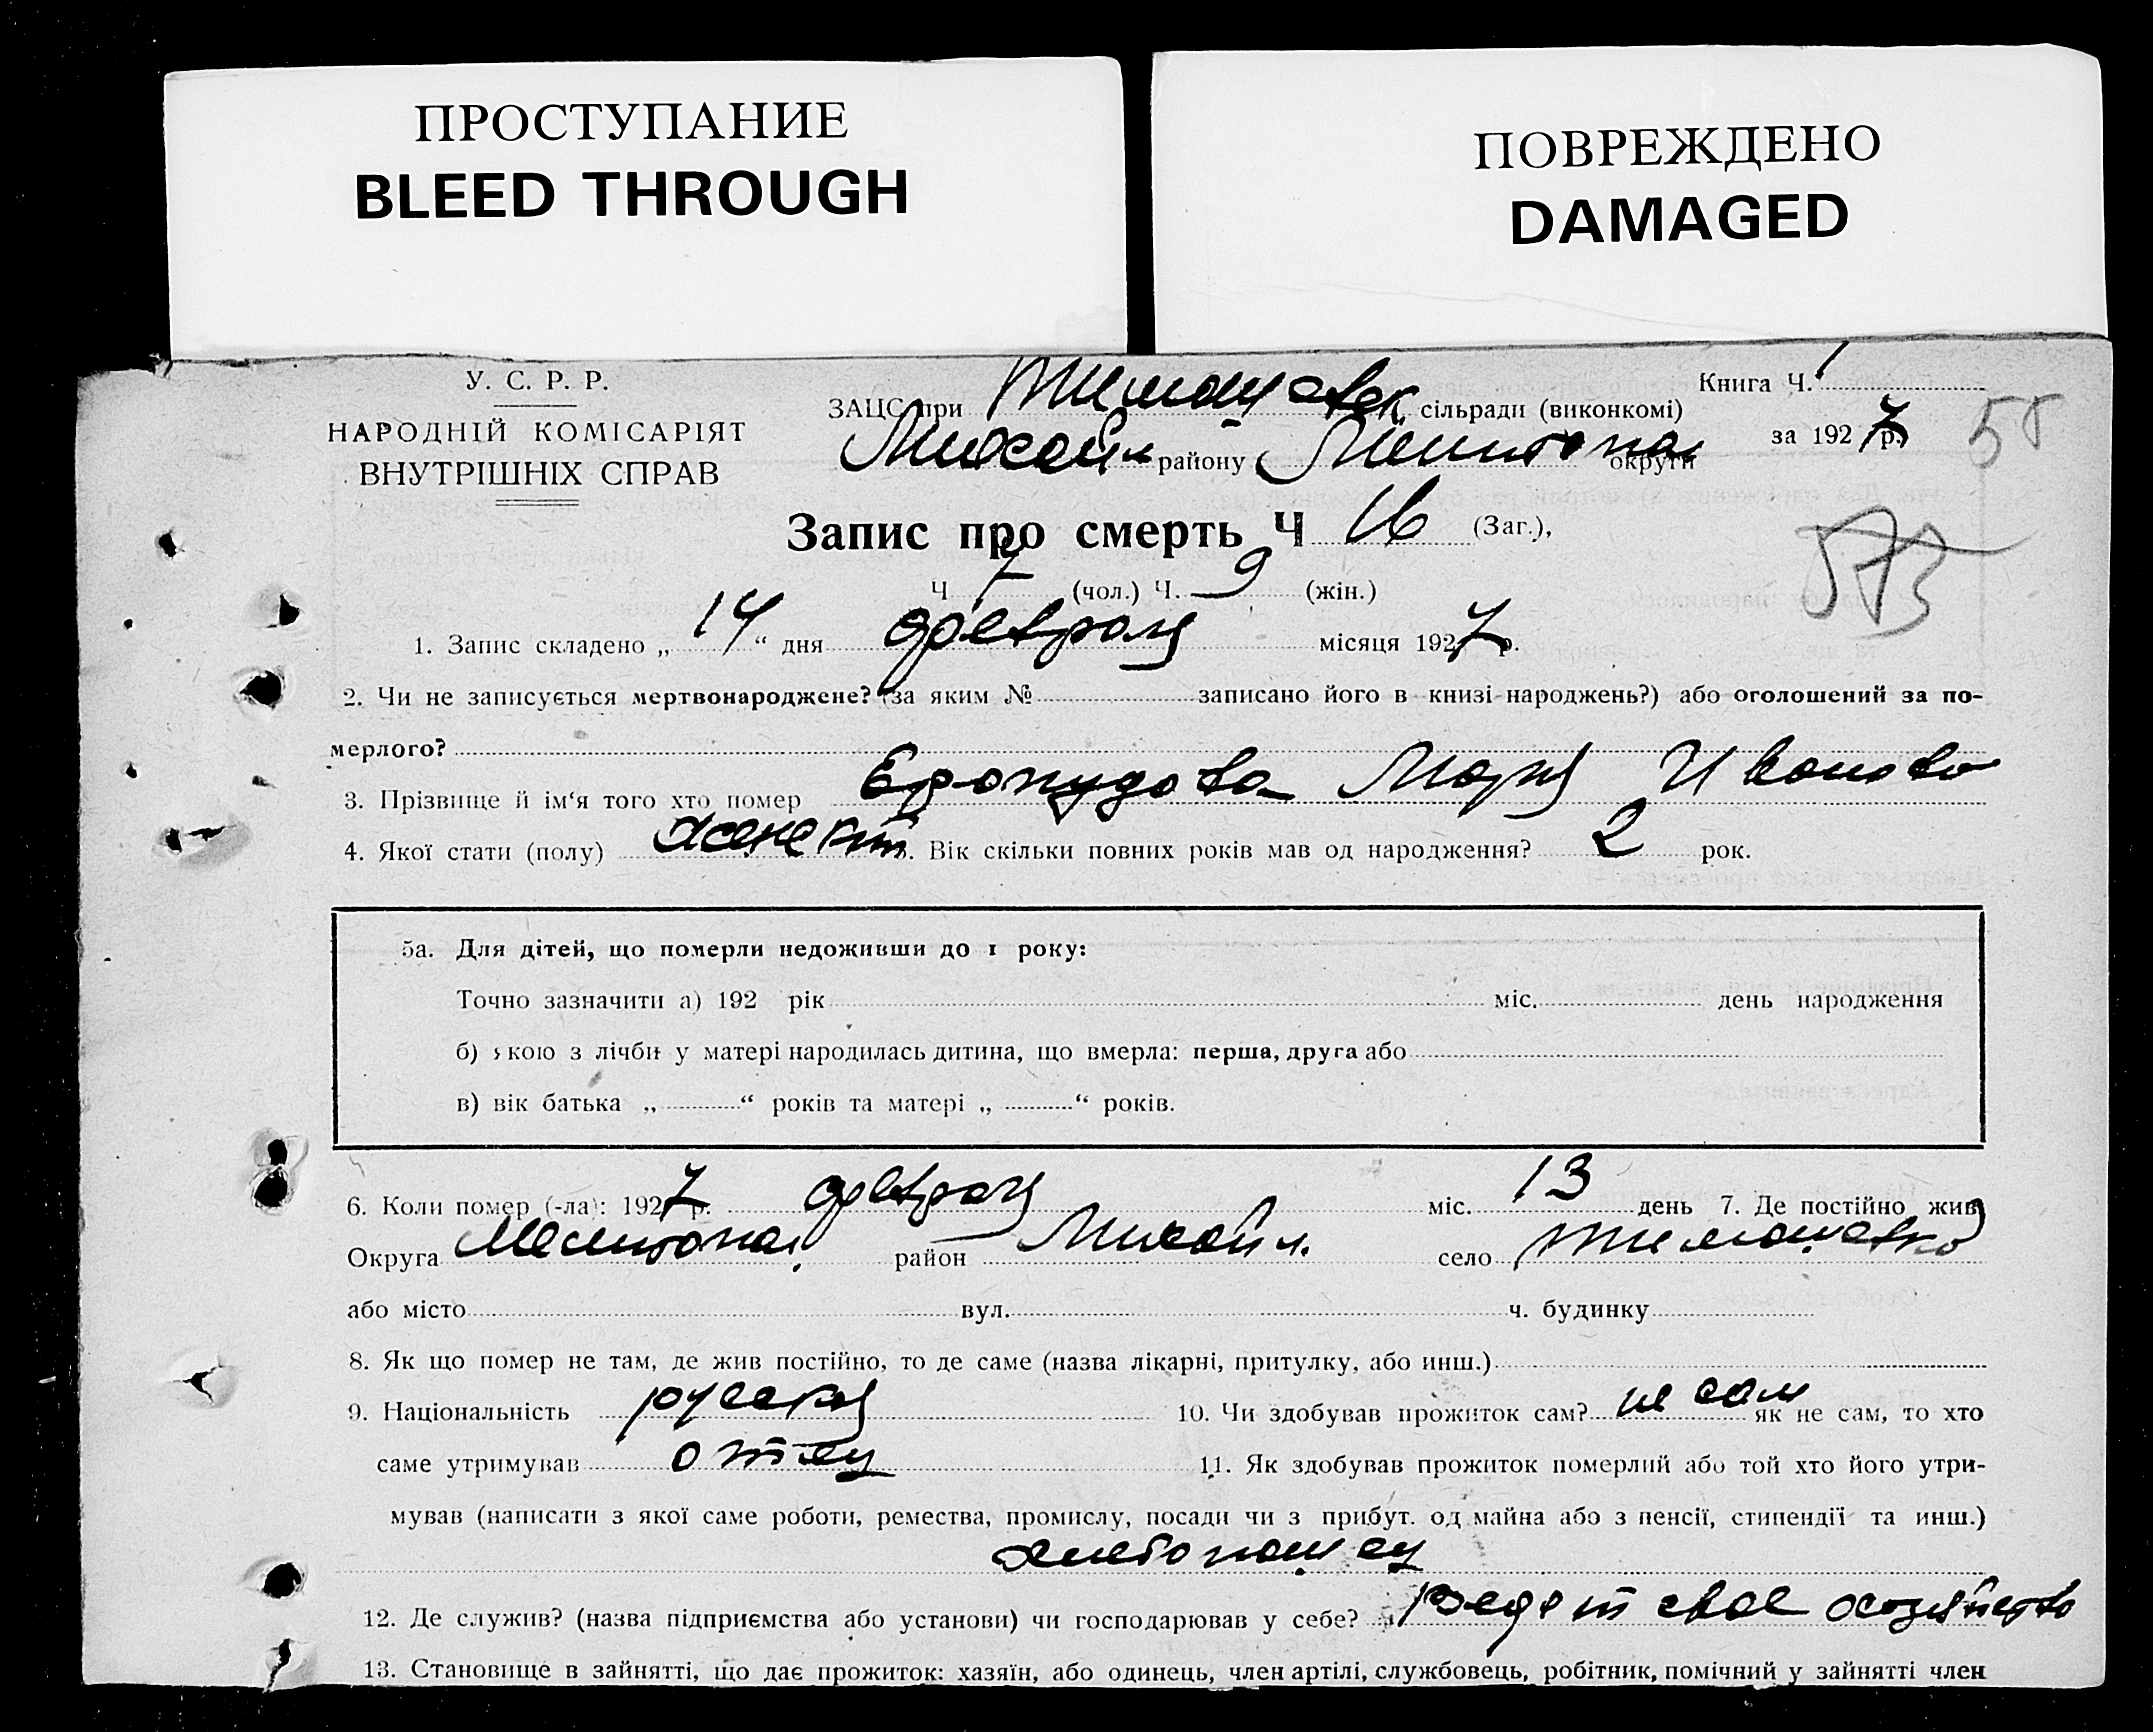 ПРОСТУПАНИЕ
BLEED THROUGH
ПОВРЕЖДЕНО
DAMAGED
У. С. Р. Р.
НАРОДНІЙ КОМІСАРІЯТ
ВНУТРІШНІХ СПРАВ
Книга Ч. 1
ЗАЦС при Тимошевск сільради (виконкомі)
за 1927 р. 58
Михайл району Мелитопол округи
Запис про смерть Ч 16 (Заг.),
573
Ч 7 (чол.) Ч. 9 (жін.)
1. Запис складено „ 14 “ дня февраля місяця 1927 р.
2. Чи не записується мертвонароджене? (за яким № записано його в книзі народжень?) або оголошений за по-
мерлого?
3. Прізвище й ім'я того хто помер Мария Иванова
4. Якої стати (полу) женск Вік скільки повних років мав од народження? 2 рок.
5а. Для дітей, що померли недоживши до 1 року:
Точно зазначити а) 192 рік міс. день народження
б) якою з лічби у матері народилась дитина, що вмерла: перша, друга або
в) вік батька „ “ років та матері „ “ років.
6. Коли помер (-ла): 1927 р. февраля міс. 13 день 7. Де постійно жив
Округа Мелитопол район Михайл. село Тимошевка
або місто вул. ч. будинку
8. Як що помер не там, де жив постійно, то де саме (назва лікарні, притулку, або инш.)
9. Національність русская 10. Чи здобував прожиток сам? не сам як не сам, то хто
саме утримував отец 11. Як здобував прожиток померлий або той хто його утри-
мував (написати з якої саме роботи, ремества, промислу, посади чи з прибут. од майна або з пенсії, стипендії та инш.)
хлебопашец
12. Де служив? (назва підприємства або установи) чи господарював у себе? ведет свое хозяйство
13. Становище в зайнятті, що дає прожиток: хазяїн, або одинець, член артілі, службовець, робітник, помічний у зайнятті член